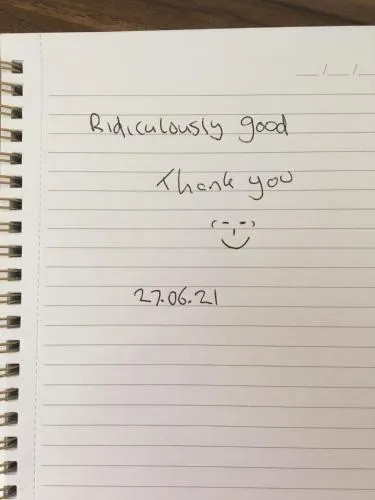 Ridiculously good
Thank you
27.06.21